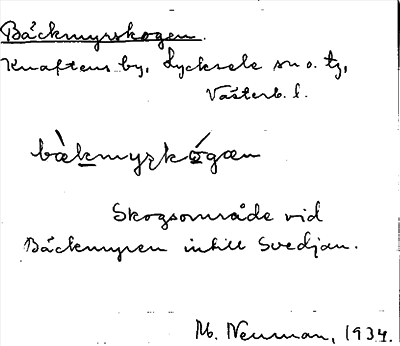 Bäckmyrskogen.
Knaftens by, Lycksele sn o. tg,
Västerb. l.
bàkmyrskógæn
Skogsområde vid
Bäckmyren intill Svedjan.
M. Neuman, 1934.